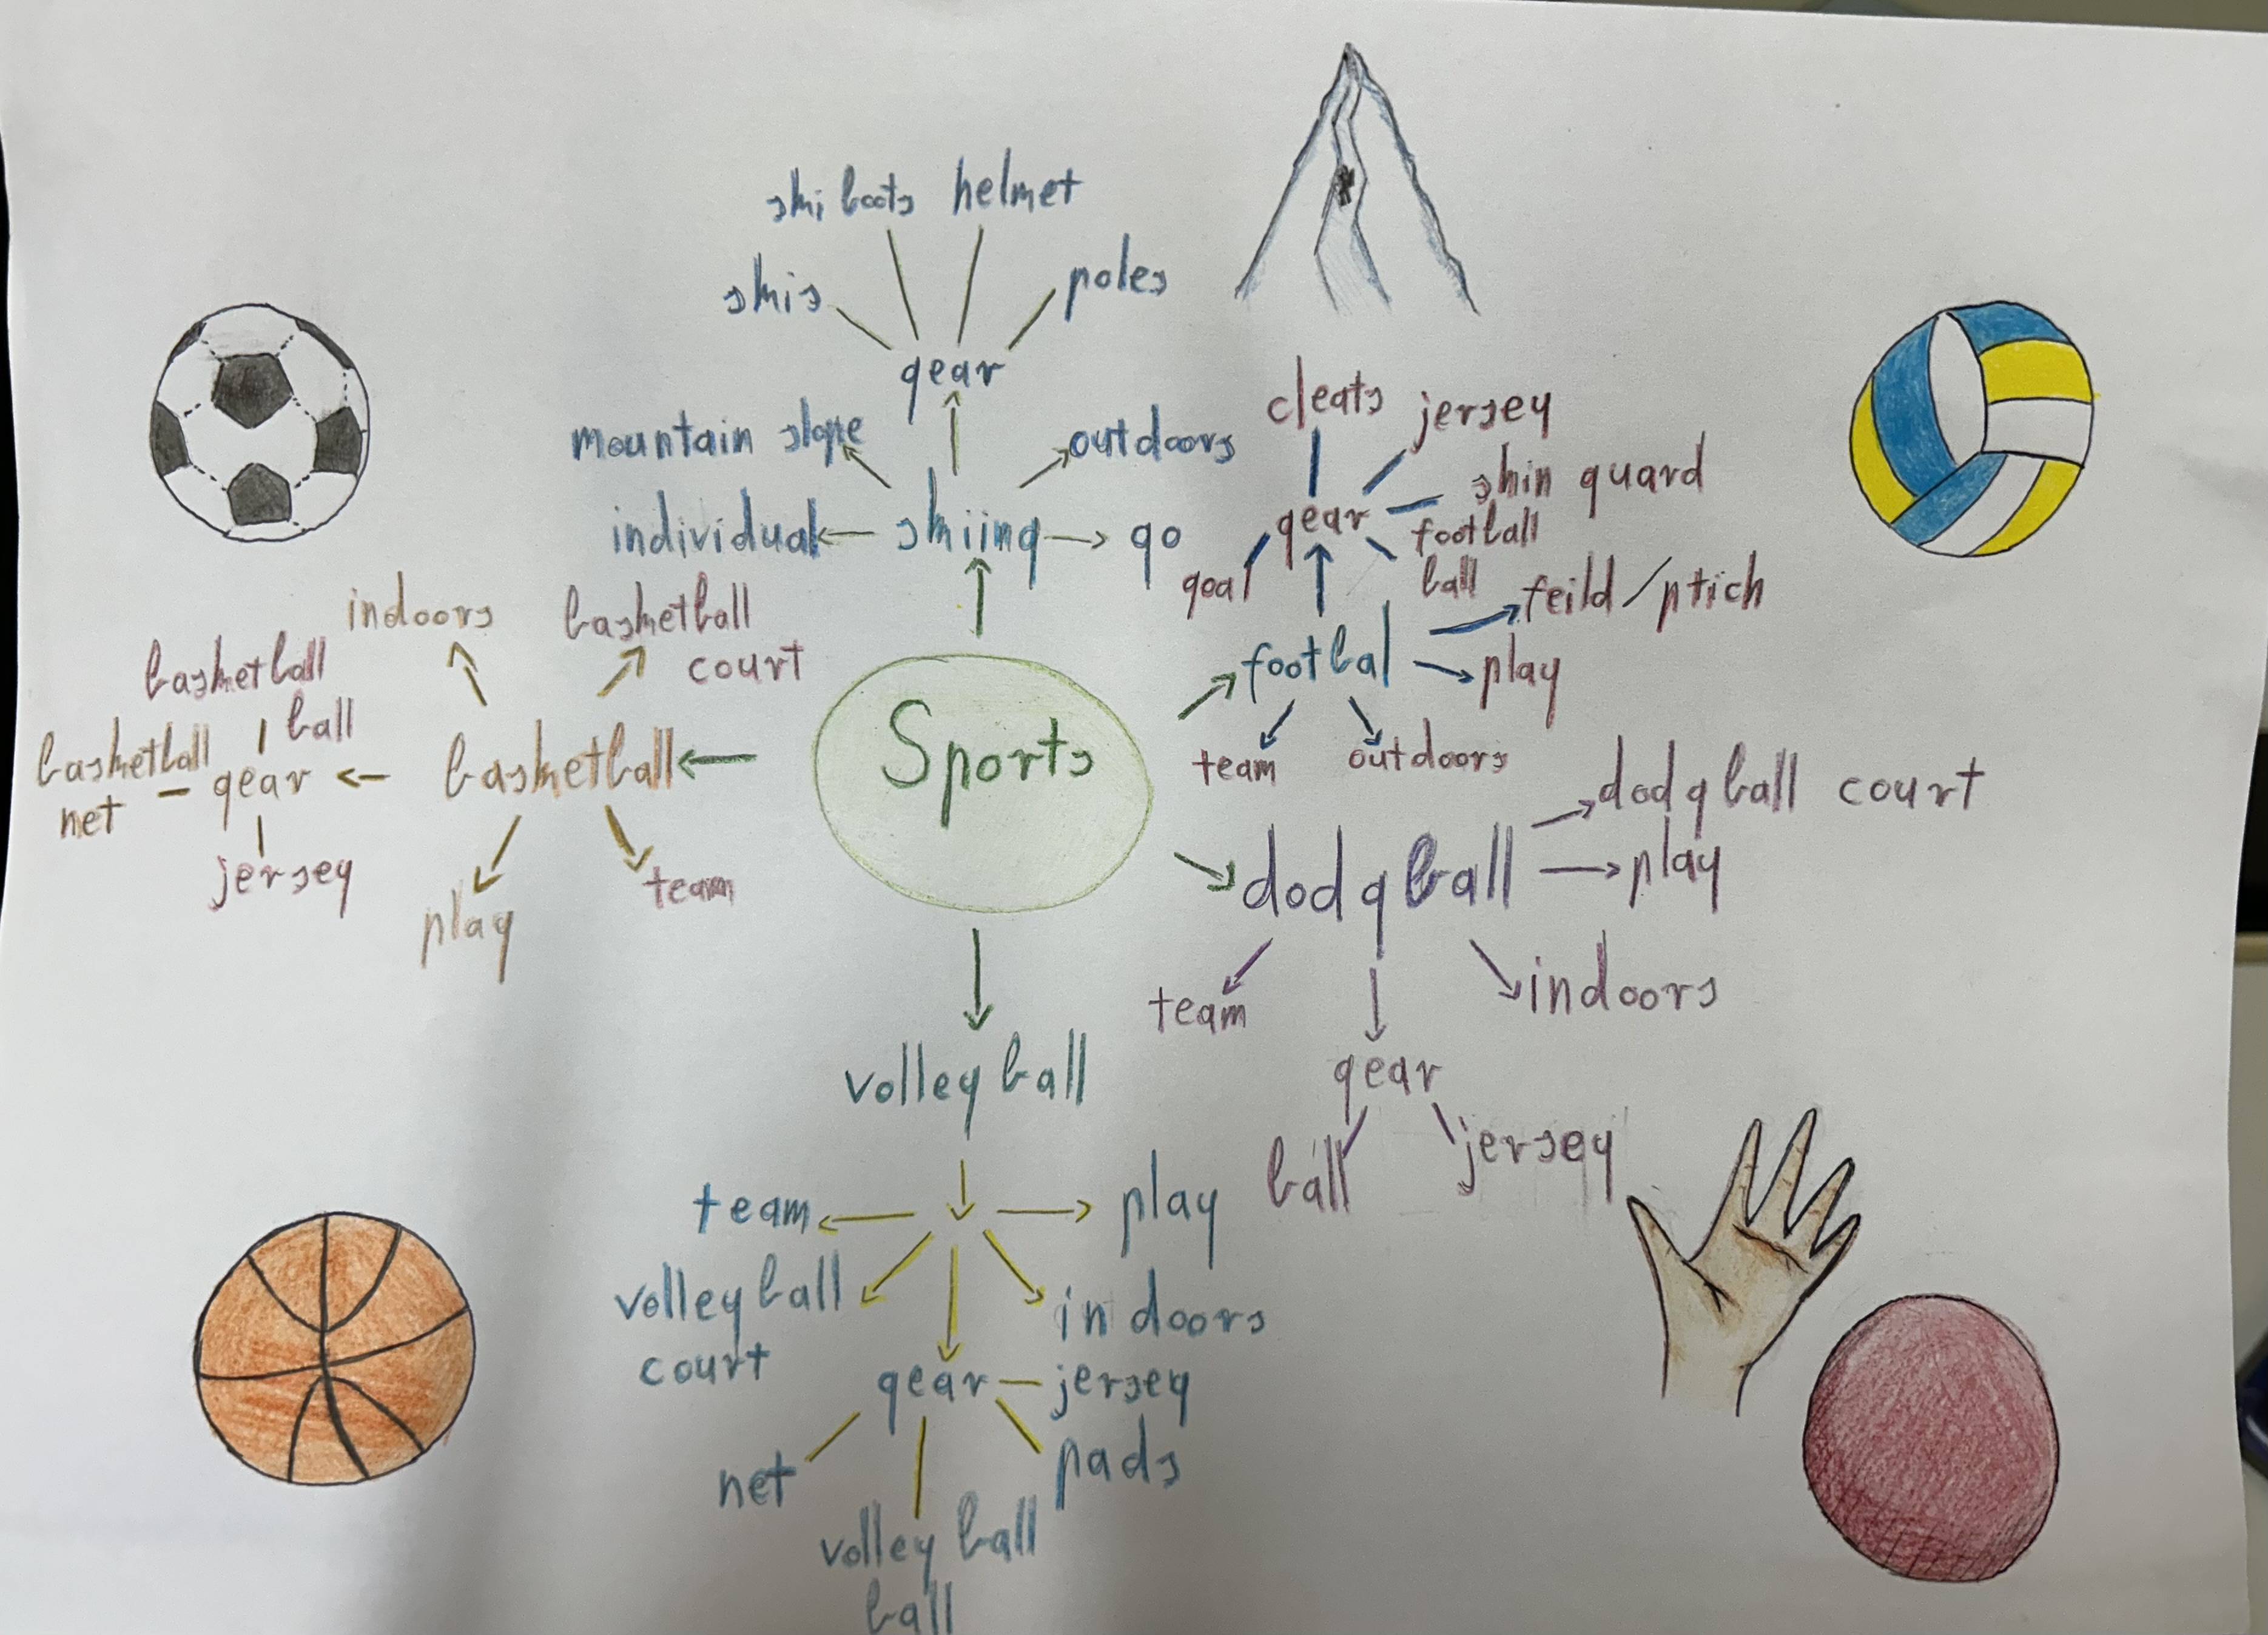 ski boots helmet
skis
poles
gear
mountain slope
outdoors
individual
skiing
go
cleats
jersey
shin guard
gear
football
ball
goal
feild/ptich
footbal
play
team
outdoors
indoors
basketball
court
basketball
ball
basketball
net
gear
basketball
jersey
play
team
Sports
dodgball court
dodgball
play
team
indoors
gear
ball
jersey
volleyball
team
play
volleyball
court
indoors
gear
jersey
net
pads
volleyball
ball